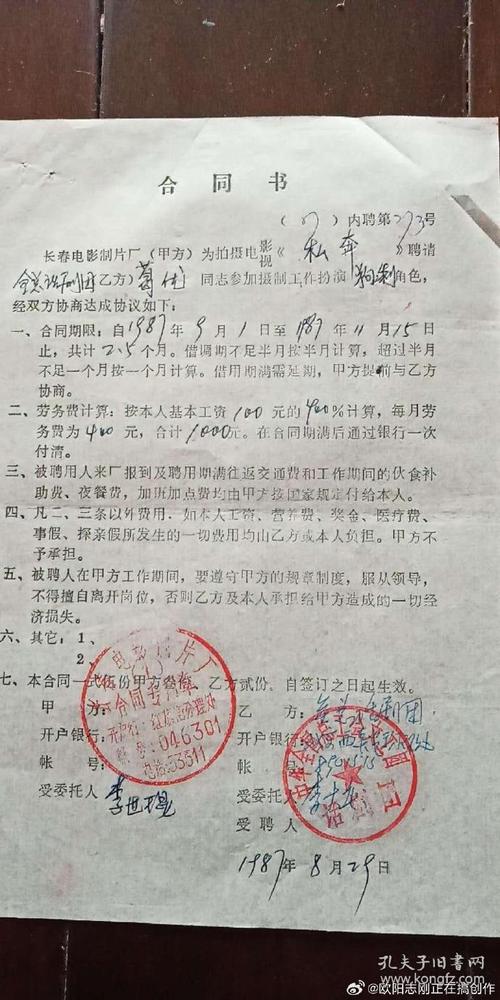 合同书
(87)内聘第273号
长春电影制片厂(甲方)为拍摄电影视《私奔》聘请
全总话剧团乙方)葛优同志参加摄制工作扮演角色,
经双方协商达成协议如下:
一、合同期限:自1987年9月1日至1987年11月15日
止,共计2.5个月。借调期不足半月按半月计算,超过半月
不足一个月按一个月计算。借用期满需延期,甲方提前与乙方
协商。
二、劳务费计算:按本人基本工资100元的400%计算,每月劳
务费为400元,合计1000元。在合同期满后通过银行一次
付清。
三、被聘用人来厂报到及聘用期满往返交通费和工作期间的伙食补
助费、夜餐费,加班加点费均由甲方按国家规定付给本人。
四、凡二、三条以外费用.如本人工资、营养费、奖金、医疗费、
事假、探亲假所发生的一切费用均由乙方或本人负担。甲方不
予承担。
五、被聘人在甲方工作期间,要遵守甲方的规章制度,服从领导,
不得擅自离开岗位,否则乙方及本人承担给甲方造成的一切经
济损失。
六、其它:1、
2、
七、本合同一式伍份甲方叁份,乙方贰份。自签订之日起生效。
甲方:
乙方:全总话剧团
开户银行:
开户银行:
帐号:
帐号:
受委托人
李世
受委托人
受聘人
1987年8月29日
电影制片厂
合同专用章
046301
电话:53311
话剧团
孔夫子旧书网
@欧阳志刚正在搞创作